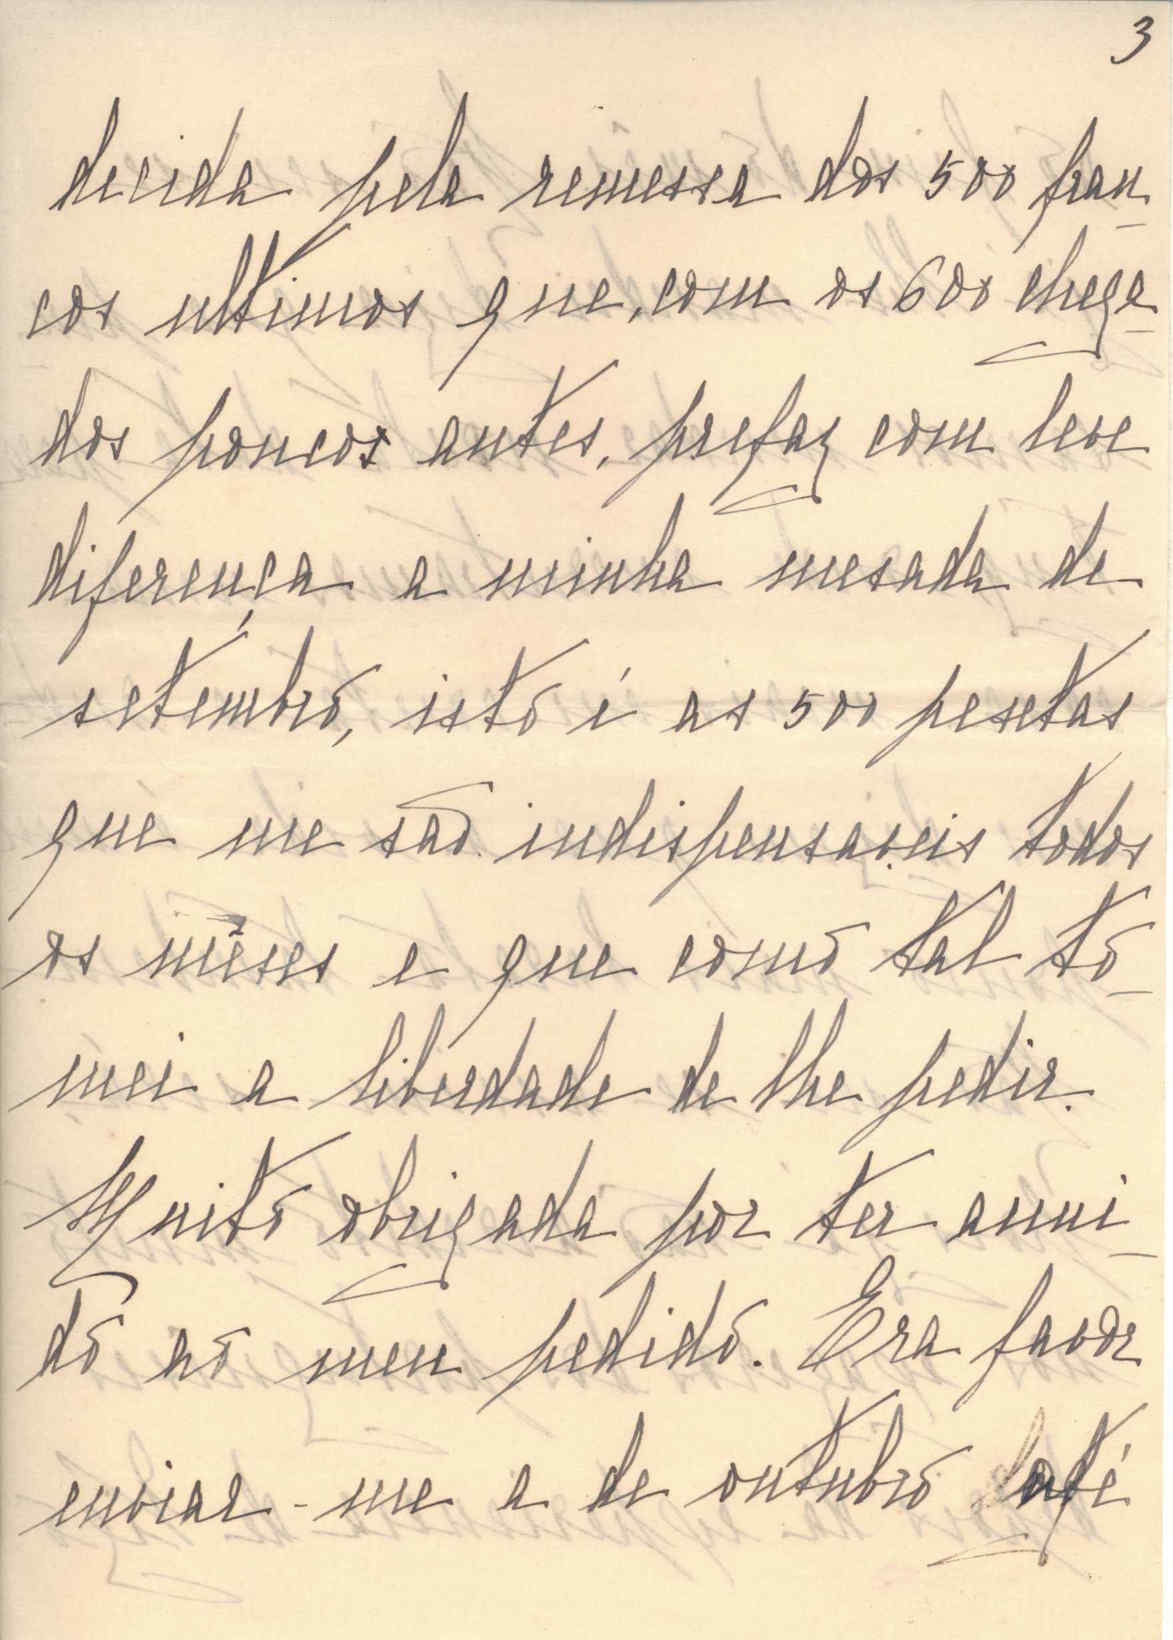 3
decida pela remessa dos 500 fran_
cos ultimos que, com os 600 chega_
dos poucos antes, prefaz com leve
diferença a minha mesada de
setembro, isto é as 500 pesetas
que me são indispensaveis todos
os mêses e que como tal to_
mei a liberdade de lhe pedir.
Muito obrigada por ter anui_
do ao meu pedido. Era favor
enviar-me a de outubro até